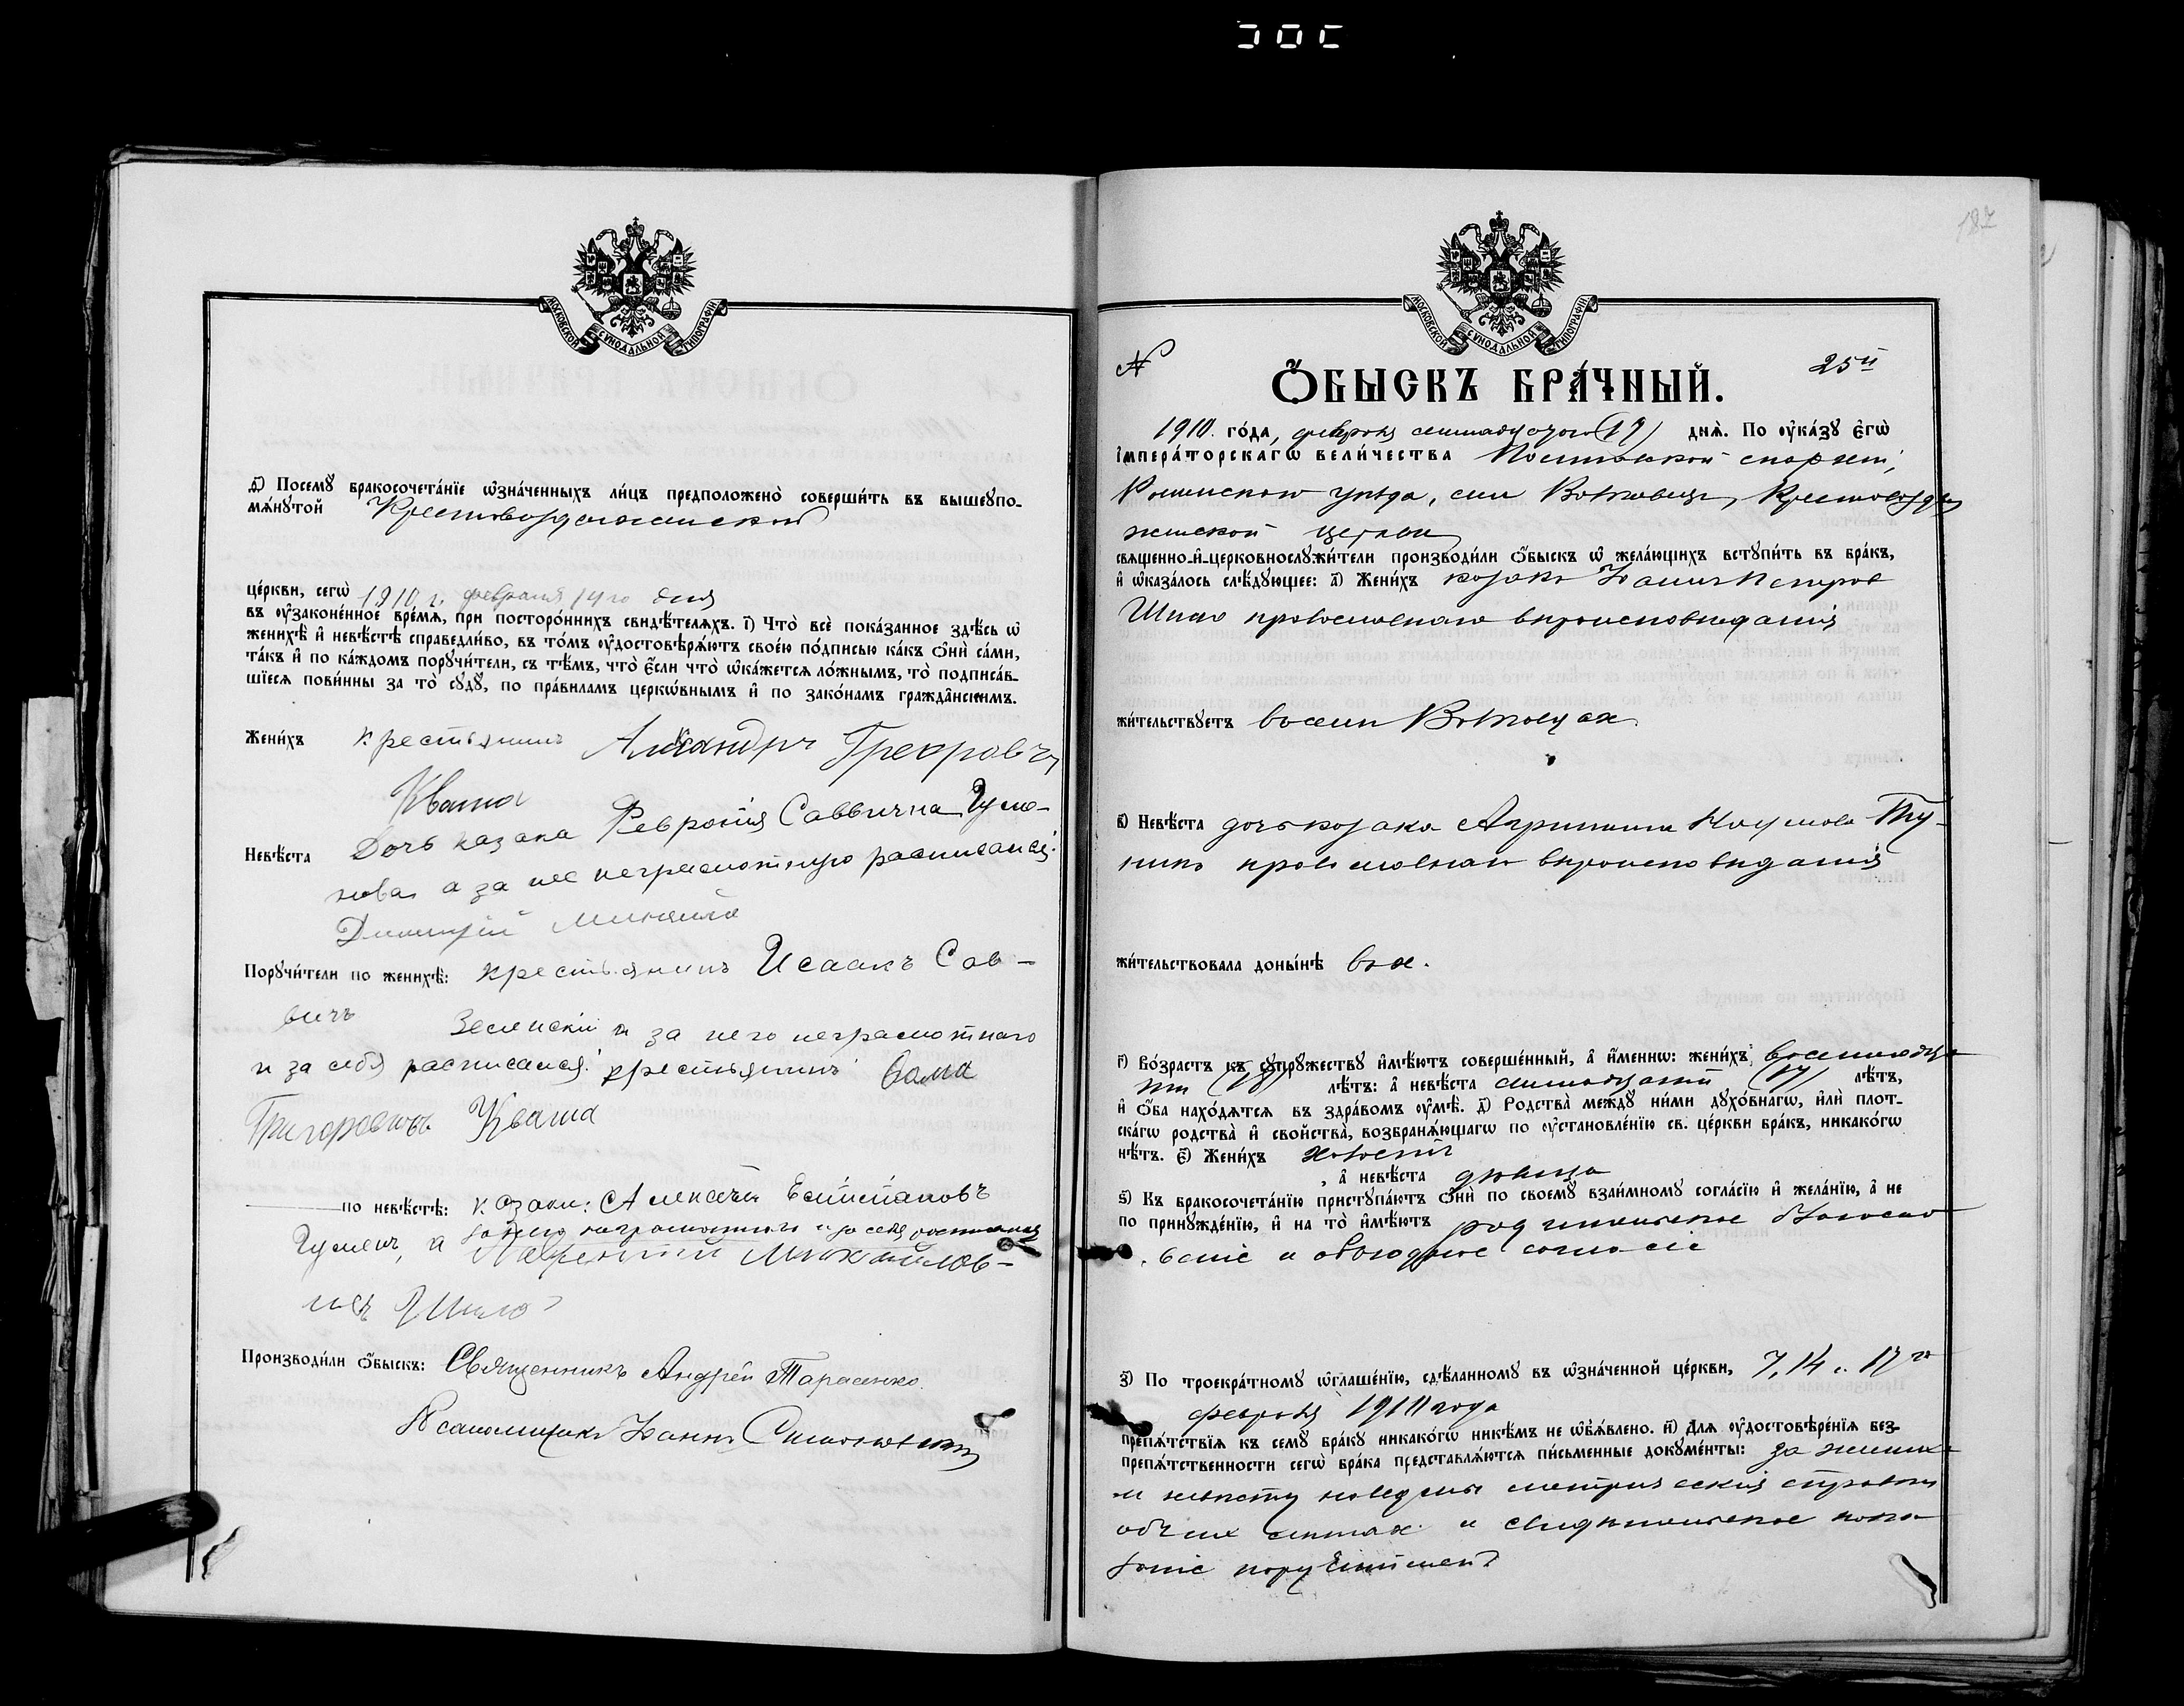 МОСКОВСКОЙ СѴНОДАЛЬНОЙ ТИПОГРАФІИ
ѳ҃) Посемꙋ̀ бракосочета́нїе ѡ҆зна́ченныхъ ли́цъ предположено̀ соверши́ть въ вышеꙋпо-
мѧ́нꙋтой Крестовоздвиженской
це́ркви, сегѡ̀ 1910 г. февраля 14го дня
въ ᲂу҆законе́нное вре́мѧ, при посторо́ннихъ свидѣ́телѧхъ. і҃) Что̀ всѐ пока́занное здѣ́сь ѡ҆
женихѣ̀ и҆ невѣ́стѣ справедли́во, въ то́мъ ᲂу҆достовѣрѧ́ютъ свое́ю по́дписью ка́къ ѻ҆нѝ са́ми,
та́къ и҆ по ка́ждомъ порꙋчи́тели, съ тѣ́мъ, что̀ є҆́сли что̀ ѡ҆ка́жетсѧ ло́жнымъ, то̀ подписа́в-
шїесѧ пови́нны за то̀ сꙋдꙋ̀, по пра́виламъ церко́внымъ и҆ по зако́намъ гражда́нскимъ.
Жени́хъ крестьянинъ Александръ
Кваша
Невѣ́ста Дочь казака Февронія Саввична Гуме-
нова а за нее неграмотную расписался:
Димитрій
Порꙋчи́тели по женихѣ̀: крестьянинъ Исаакъ Сав-
вичъ Зеленскій а за него неграмотнаго
и за себя расписался: крестьянинъ
Григорьевичъ Кваша
по невѣ́стѣ: казаки: Алексѣй
а за него неграмотнаго и за себя росписался
Лаврентій Михайлов-
ичъ Шило
Производи́ли ѻ҆́быскъ: Священникъ Андрей Тарасенко
Псаломщикъ Іоаннъ
МОСКОВСКОЙ СѴНОДАЛЬНОЙ ТИПОГРАФІИ
187
№ 25й
Ѻ҆́БЫСКЪ БРА́ЧНЫЙ.
1910 го́да, февраля семнадцатого (17) днѧ̀. По ᲂу҆ка́зꙋ є҆гѡ̀
і҆мпера́торскагѡ вели́чества Полтавской епархіи,
Роменского уѣзда, села Волковец, Крестовоздви
женской церкви
свѧще́нно-и҆-церковнослꙋжи́тели производи́ли ѻ҆́быскъ ѡ҆ жела́ющихъ встꙋпи́ть въ бра́къ,
и҆ ѡ҆каза́лось слѣ́дꙋющее: а҃) Жени́хъ козакъ Іоаннъ Петров
Шило православнаго вѣроисповѣданія
жи́тельствꙋетъ в селѣ Волковцах
в҃) Невѣ́ста дочь козака Агрипина Наумова
православнаго вѣроисповѣданія
жи́тельствовала доны́нѣ
г҃) Во́зрастъ къ сꙋпрꙋжествꙋ̀ и҆мѣ́ютъ соверше́нный, а҆ и҆́меннѡ: жени́хъ восемнадца
ти (18) лѣ́тъ: а҆ невѣ́ста семнадцати (17) лѣ́тъ,
и҆ ѻ҆́ба нахо́дѧтсѧ въ здра́вомъ ᲂу҆мѣ̀. д҃) Родства̀ междꙋ̀ ни́ми дꙋхо́внагѡ, и҆лѝ пло́т-
скагѡ родства̀ и҆ свойства̀, возбранѧ́ющагѡ по ᲂу҆становле́нїю св. це́ркви бра́къ, никако́гѡ
нѣ́тъ. є҃) Жени́хъ холостъ
, а҆ невѣ́ста дѣвица
ѕ҃) Къ бракосочета́нїю пристꙋпа́ютъ ѻ҆нѝ по своемꙋ̀ взаи́мномꙋ согла́сїю и҆ жела́нїю, а҆ не
по принꙋжде́нїю, и҆ на то̀ и҆мѣ́ютъ родительское благосло
веніе и обоюдное согласіе
з҃) По троекра́тномꙋ ѡ҆глаше́нїю, сдѣ́ланномꙋ въ ѡ҆зна́ченной це́ркви, 7, 14 и 17го
февраля 1910 года
препѧ́тствїѧ къ семꙋ̀ бра́кꙋ никако́гѡ никѣ́мъ не ѡ҆б̾ѧ́влено. и҃) Длѧ ᲂу҆достовѣре́нїѧ без-
препѧ́тственности сегѡ̀ бра́ка представлѧ́ютсѧ пи́сьменные докꙋме́нты: за жениха
и невѣсту наведены метрическія справки
об их лѣтах и свидѣтельское пока
заніе поручителей